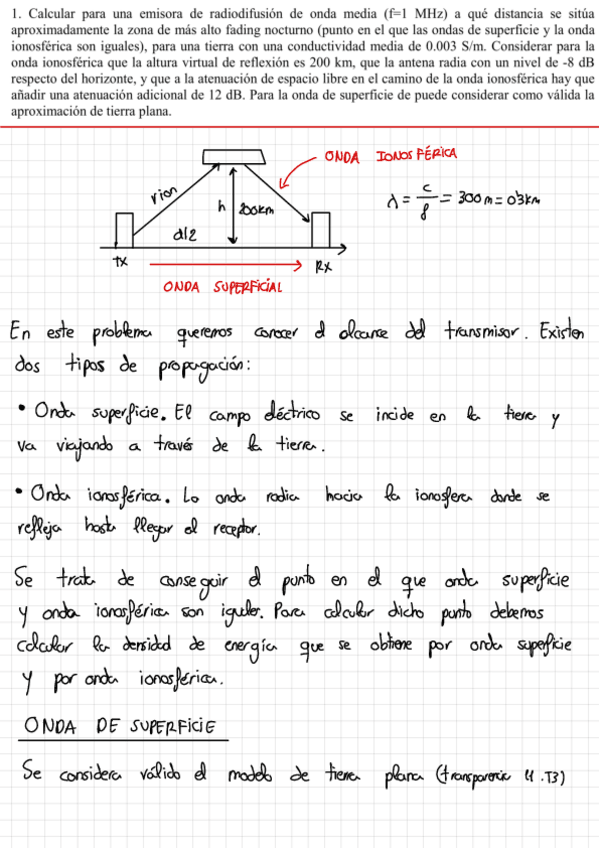 1. Calcular para una emisora de radiodifusión de onda media (f=1 MHz) a qué distancia se sitúa
aproximadamente la zona de más alto fading nocturno (punto en el que las ondas de superficie y la onda
ionosférica son iguales), para una tierra con una conductividad media de 0.003 S/m. Considerar para la
onda ionosférica que la altura virtual de reflexión es 200 km, que la antena radia con un nivel de -8 dB
respecto del horizonte, y que a la atenuación de espacio libre en el camino de la onda ionosférica hay que
añadir una atenuación adicional de 12 dB. Para la onda de superficie de puede considerar como válida la
aproximación de tierra plana.
ONDA IONOSFÉRICA
rion
h
200km
d/2
λ = c/f = 300m = 0'3km
TX
RX
ONDA SUPERFICIAL
En este problema queremos conocer el alcance del transmisor. Existen
dos tipos de propagación:
• Onda superficie. El campo eléctrico se incide en la tierra y
va viajando a través de la tierra.
• Onda ionosférica. La onda radia hacia la ionosfera donde se
refleja hasta llegar al receptor.
Se trata de conseguir el punto en el que onda superficie
y onda ionosférica son iguales. Para calcular dicho punto debemos
calcular la densidad de energía que se obtiene por onda superficie
y por onda ionosférica.
ONDA DE SUPERFICIE
Se considera válido el modelo de tierra plana (transparencia 4.T3)